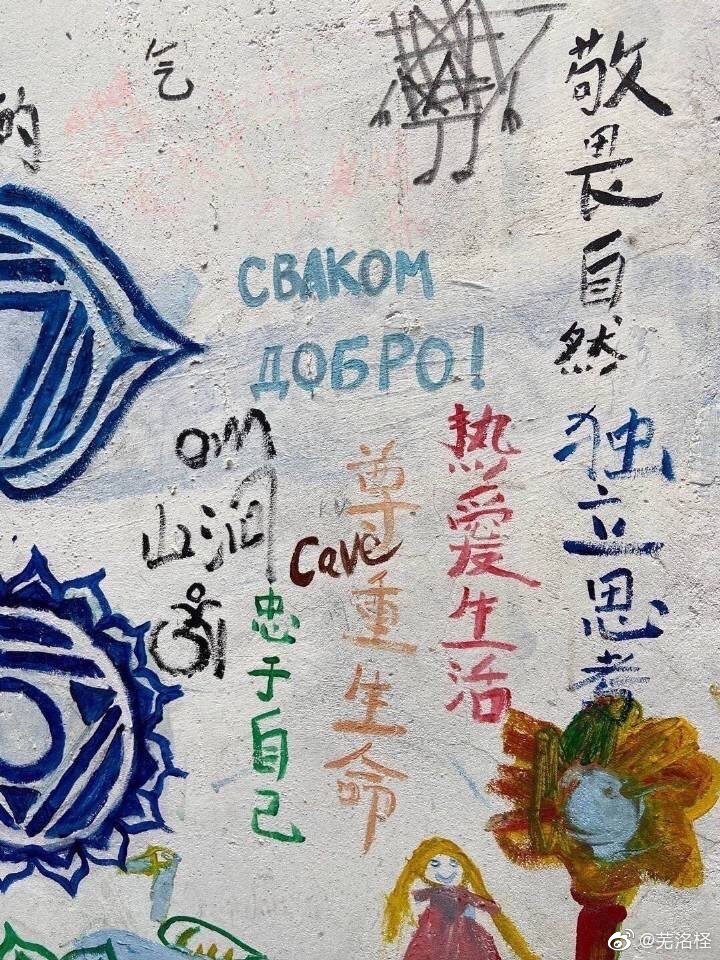 气
的
敬畏自然
СВАКОМ
ДОБРО!
独立思考
热愛生活
尊重生命
om
山洞
Cave
忠于自己
@芜洺柽